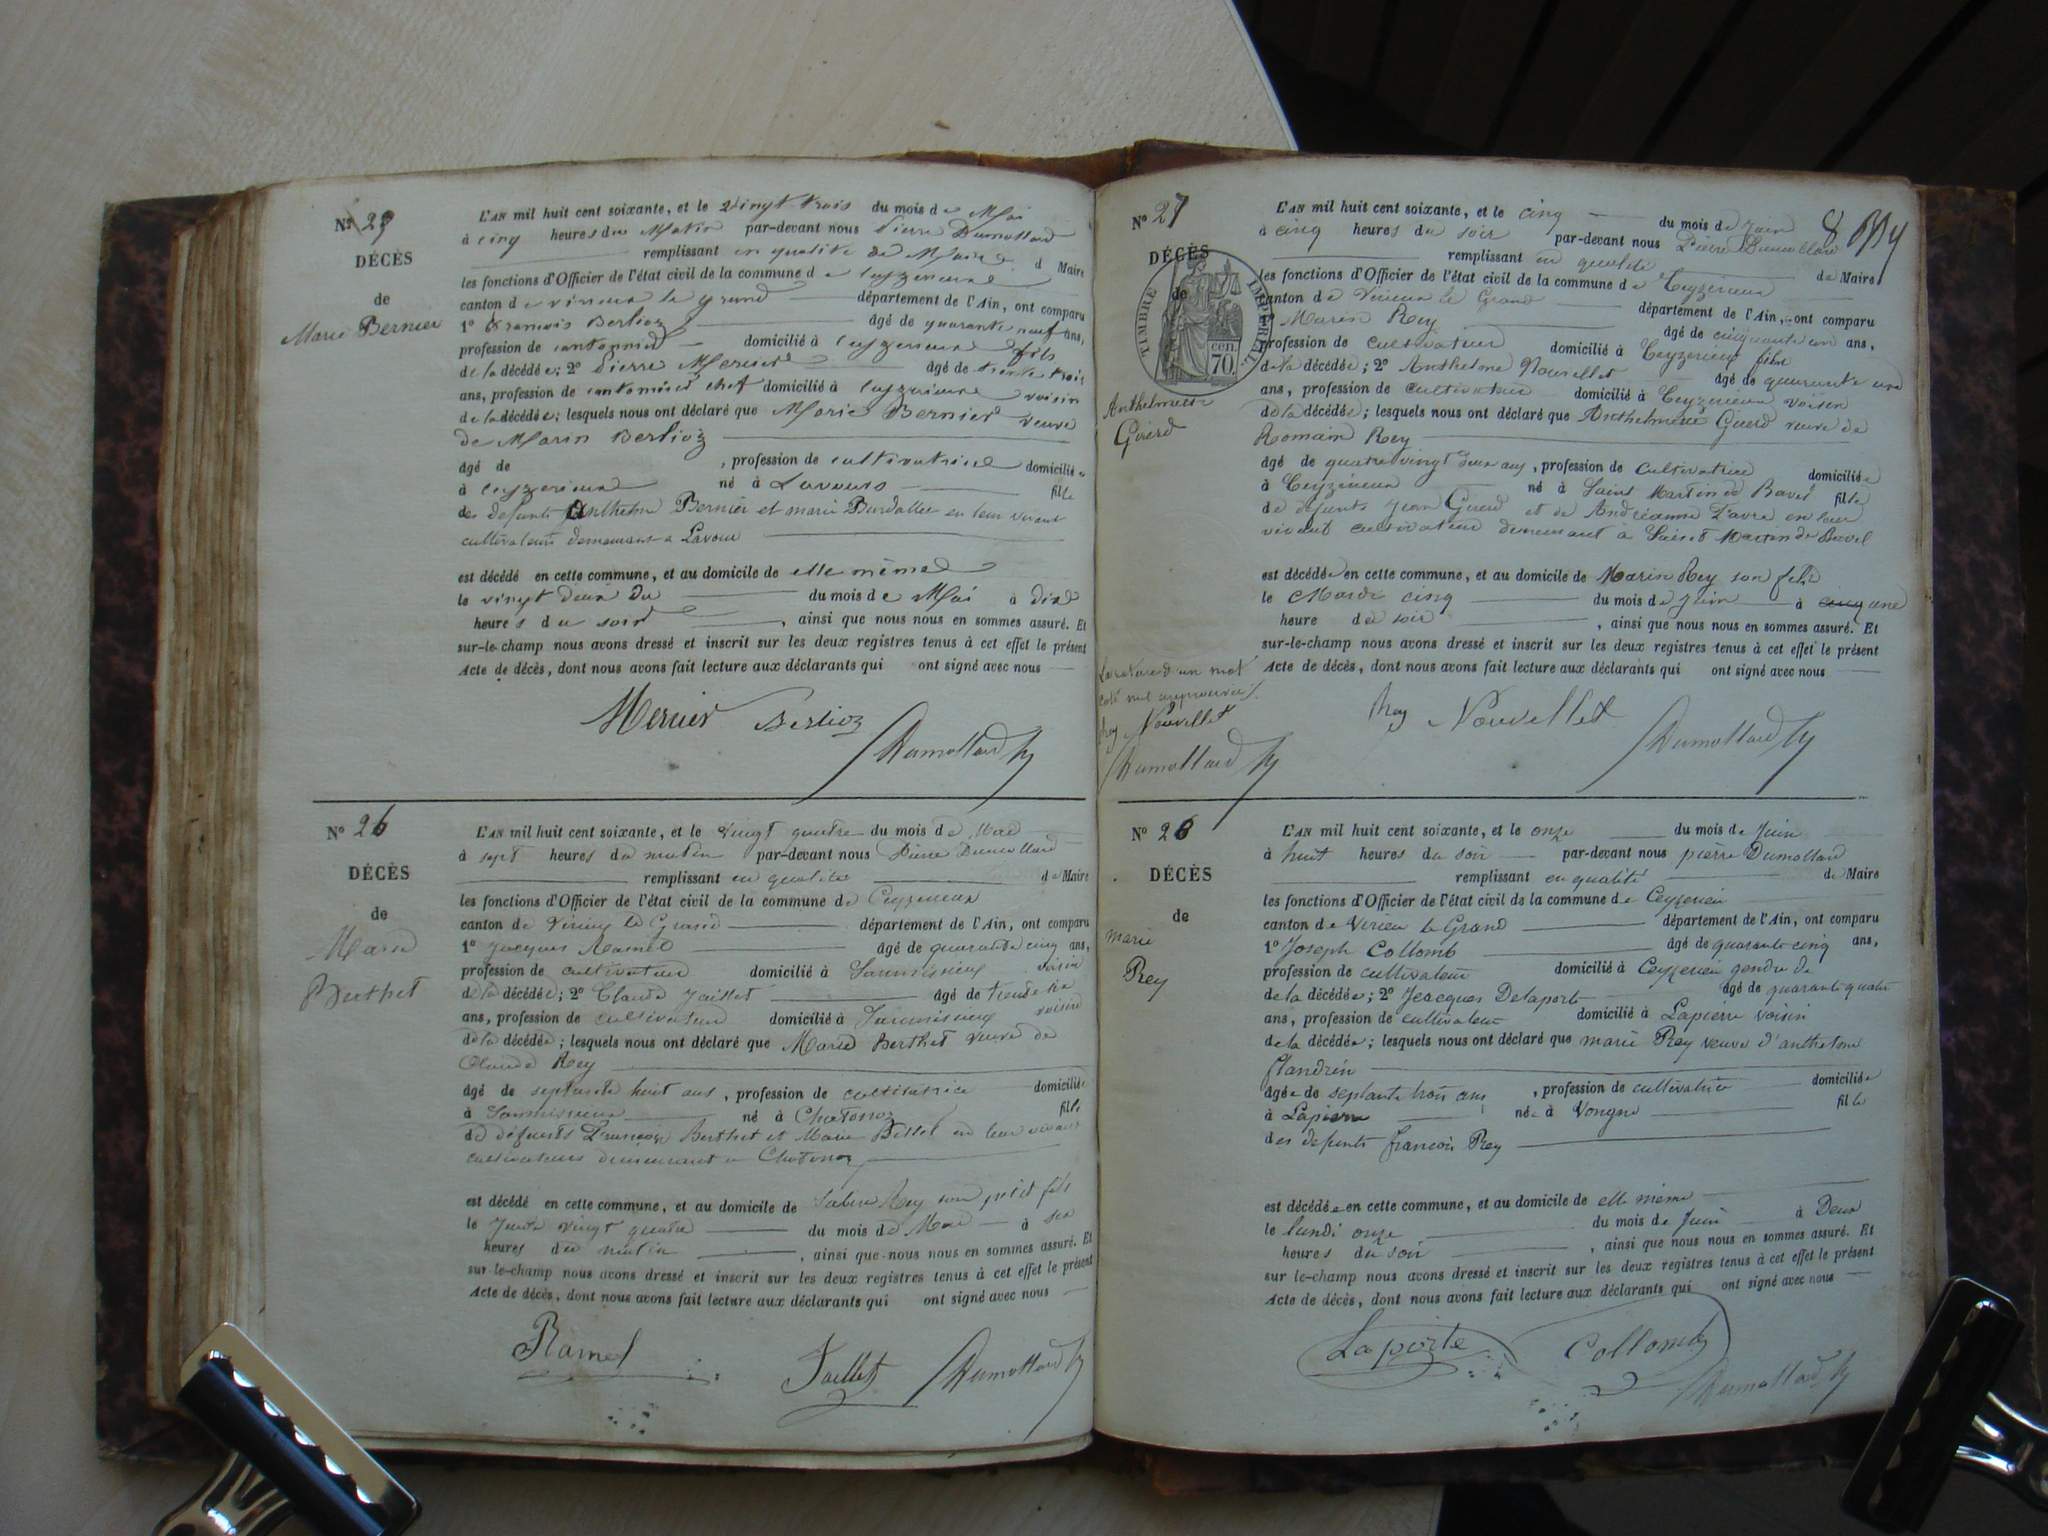 N° 25
DÉCÈS
de
Marie Bernier
L'AN mil huit cent soixante, et le vingt trois du mois de Mai
à cinq heures du Matin par-devant nous Pierre Dumollard
remplissant en qualité de Maire d Maire
les fonctions d'Officier de l'état civil de la commune de Ceyzerieux
canton de virieux le grand département de l'Ain, ont comparu
1° François Berlioz âgé de quarante neuf ans,
profession de cantonnier domicilié à Ceyzerieux fils
de la décédée; 2° Pierre Mercier âgé de trente trois
ans, profession de cantonnier chef domicilié à Ceyzerieux voisin
de la décédée; lesquels nous ont déclaré que Marie Bernier veuve
de Marin Berlioz
âgé de , profession de cultivatrice domiciliée
à Ceyzerieux né à Lavours fille
des defunts Anthelme Bernier et marie Burdallet en leur vivant
cultivateurs demeurant a Lavour
est décédé en cette commune, et au domicile de elle même
le vingt deux du du mois de Mai à dix
heures du soir , ainsi que nous nous en sommes assuré. Et
sur-le-champ nous avons dressé et inscrit sur les deux registres tenus à cet effet le présent
Acte de décès, dont nous avons fait lecture aux déclarants qui ont signé avec nous
Mercier Berlioz
Dumollard
N° 26
DÉCÈS
de
Marie
Berthet
L'AN mil huit cent soixante, et le vingt quatre du mois de Mai
à sept heures du matin par-devant nous Pierre Dumollard
remplissant en qualité de Maire
les fonctions d'Officier de l'état civil de la commune de Ceyzerieux
canton de Virieux le Grand département de l'Ain, ont comparu
1° Jacques Ramel âgé de quarante cinq ans,
profession de cultivateur domicilié à voisin
de la décédée; 2° Claude Jaillet âgé de trente six
ans, profession de cultivateur domicilié à voisin
de la décédée; lesquels nous ont déclaré que Marie Berthet veuve de
Claude Rey
âgé de septante huit ans, profession de cultivatrice domiciliée
à né à Chatonoz fille
de défunts François Berthet et Marie Billet en leur vivant
cultivateurs demeurant a Chatonoz
est décédé en cette commune, et au domicile de Rey son petit fils
le Jeudi vingt quatre du mois de Mai à six
heures du matin , ainsi que nous nous en sommes assuré. Et
sur le-champ nous avons dressé et inscrit sur les deux registres tenus à cet effet le présent
Acte de décès, dont nous avons fait lecture aux déclarants qui ont signé avec nous
Ramel
Jaillet Dumollard
N° 27
DÉCÈS
de
TIMBRE IMPÉRIAL
cen.
70.
Anthelmette
Guerd
8
L'AN mil huit cent soixante, et le cinq du mois de Juin
à cinq heures du soir par-devant nous Pierre Dumollard
remplissant en qualité de Maire
les fonctions d'Officier de l'état civil de la commune de Ceyzerieux
canton de Virieux le Grand département de l'Ain, ont comparu
1° Marin Rey âgé de cinquante un ans,
profession de cultivateur domicilié à Ceyzerieux fils
de la décédée; 2° Anthelme Nouvellet âgé de quarante un
ans, profession de cultivateur domicilié à Ceyzerieux voisin
de la décédée; lesquels nous ont déclaré que Anthelmette Guerd veuve de
Romain Rey
âgé de quatre vingt deux ans, profession de cultivatrice domiciliée
à Ceyzerieux né à Saint Martin de Bavel fille
de défunts Jean Guerd et de Andréanne Favre en leur
vivant cultivateur demeurant à Saint Martin de Bavel
est décédée en cette commune, et au domicile de Marin Rey son fils
le Mardi cinq du mois de Juin à cinq une
heure du soir , ainsi que nous nous en sommes assuré. Et
sur-le-champ nous avons dressé et inscrit sur les deux registres tenus à cet effet le présent
Acte de décès, dont nous avons fait lecture aux déclarants qui ont signé avec nous
La rature d'un mot
coté nul approuvée
Rey Nouvellet
Dumollard
Rey Nouvellet
Dumollard
N° 28
DÉCÈS
de
marie
Rey
L'AN mil huit cent soixante, et le onze du mois de Juin
à huit heures du soir par-devant nous pierre Dumollard
remplissant en qualité de Maire
les fonctions d'Officier de l'état civil de la commune de Ceyzerieu
canton de Virieu le Grand département de l'Ain, ont comparu
1° Joseph Collomb âgé de quarante cinq ans,
profession de cultivateur domicilié à Ceyzerieu gendre de
de la décédée; 2° Jeacques Delaporte âgé de quarante quatre
ans, profession de cultivateur domicilié à Lapierre voisin
de la décédée; lesquels nous ont déclaré que marie Rey veuve d'anthelme
flandrin
âgée de septante trois ans, profession de cultivatrice domiciliée
à Lapierre née à Vongne fille
des defunts francois Rey
est décédée en cette commune, et au domicile de elle même
le lundi onze du mois de Juin à Deux
heures du soir , ainsi que nous nous en sommes assuré. Et
sur le-champ nous avons dressé et inscrit sur les deux registres tenus à cet effet le présent
Acte de décès, dont nous avons fait lecture aux déclarants qui ont signé avec nous
Laporte Collomb
Dumollard